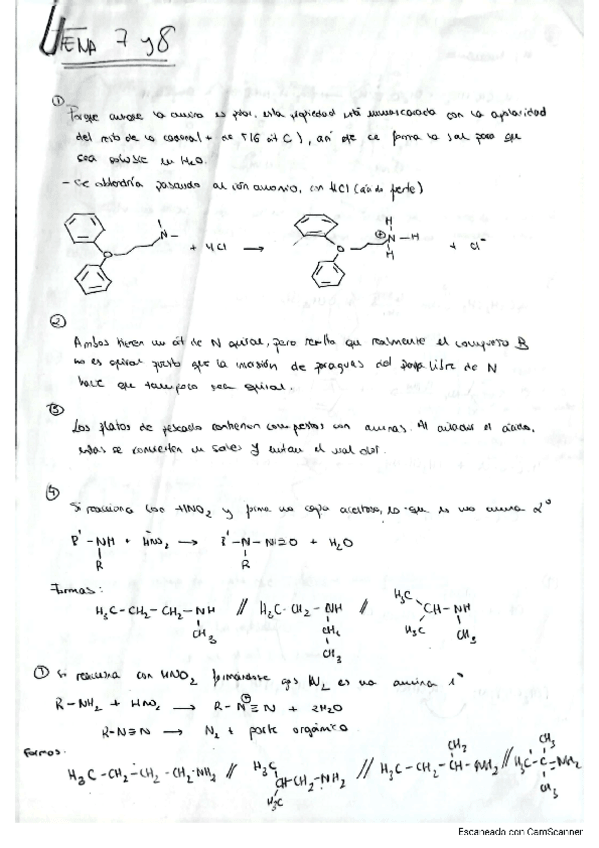 TEMA 7 y 8
①
Porque aunque la amina es polar, esta propiedad está enmascarada con la apolaridad
del resto de la cadena (+ de 5 / 6 át C), así que se forma la sal para que
sea soluble en H₂O.
- Se obtendría pasando al ión amonio, con HCl (ácido fuerte)
N + HCl → H ⊕N-H H + Cl⁻
②
Ambos tienen un át de N quiral, pero resulta que realmente el compuesto B
no es quiral puesto que la inversión de paraguas del par libre de N
hace que tampoco sea quiral.
③
Los platos de pescado contienen compuestos con aminas. Al añadir el ácido,
estas se convierten en sales y evitan el mal olor.
④
Si reacciona con HNO₂ y forma una capa aceitosa, es que es una amina 2º
R'-NH + HNO₂ → R'-N-N=O + H₂O
R R
Formas:
H₃C-CH₂-CH₂-NH // H₃C-CH₂-NH // H₃C CH-NH
CH₃ CH₂ H₃C CH₃
CH₃
Si reacciona con HNO₂ formándose gas N₂ es una amina 1º
R-NH₂ + HNO₂ → R-N⊕≡N + 2H₂O
R-N≡N → N₂ + parte orgánica
Formas:
CH₃ CH₃
H₃C-CH₂-CH₂-CH₂-NH₂ // H₃C CH-CH₂-NH₂ // H₃C-CH₂-CH-NH₂ // H₃C-C-NH₂
H₃C CH₃
Escaneado con CamScanner